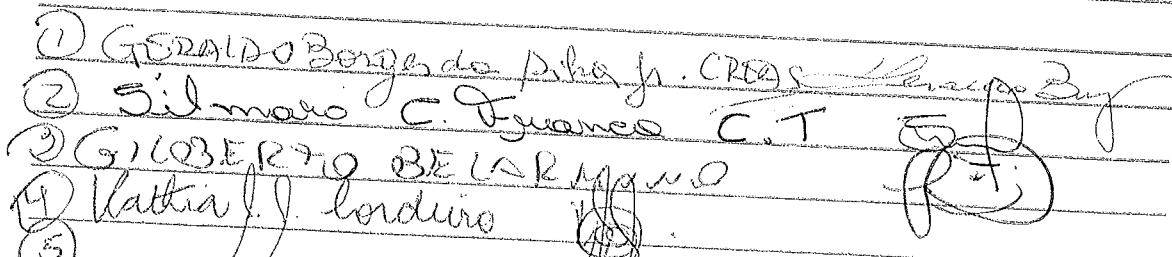 ① GERALDO Borges da Silva Jr. CREAS
② Silmara C. C.T
③ GILBERTO BELARMINO
④ Kathia J. J. Cordeiro
⑤